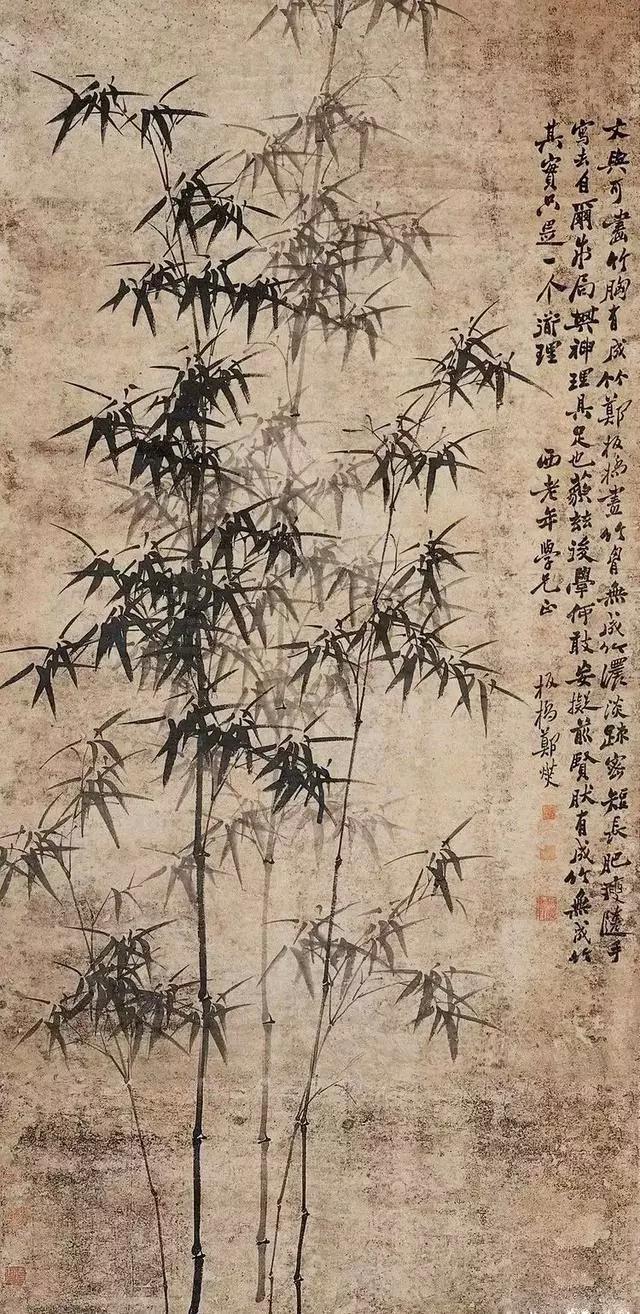 文與可畫竹胸有成竹鄭板橋畫竹胷無成竹濃淡疎密短長肥瘦隨手
寫去自爾成局其神理具足也藐茲後學何敢妄擬前賢肰有成竹無成竹
其實只是一个道理 西老年學兄正 板橋鄭燮